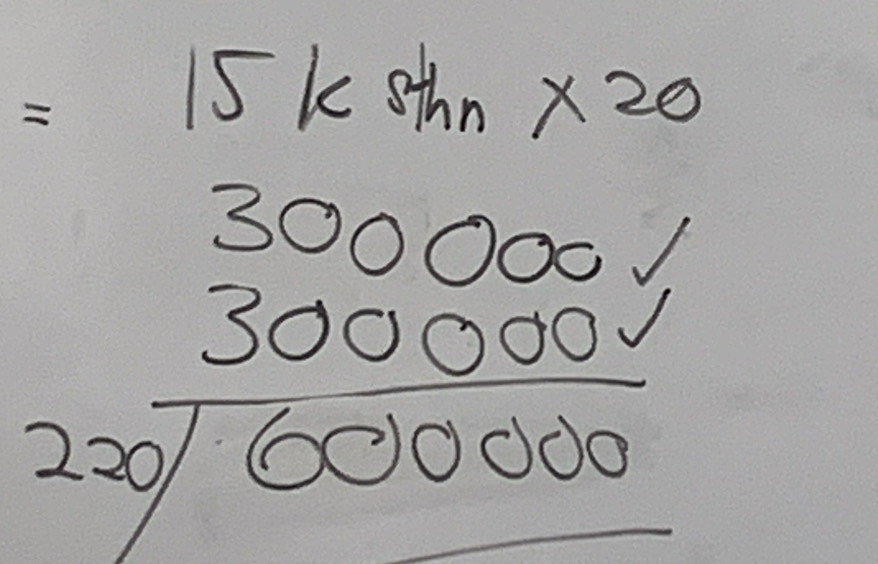 = 15 k sthn × 20
300 000 ✓
300 000 ✓
220 / 600 000